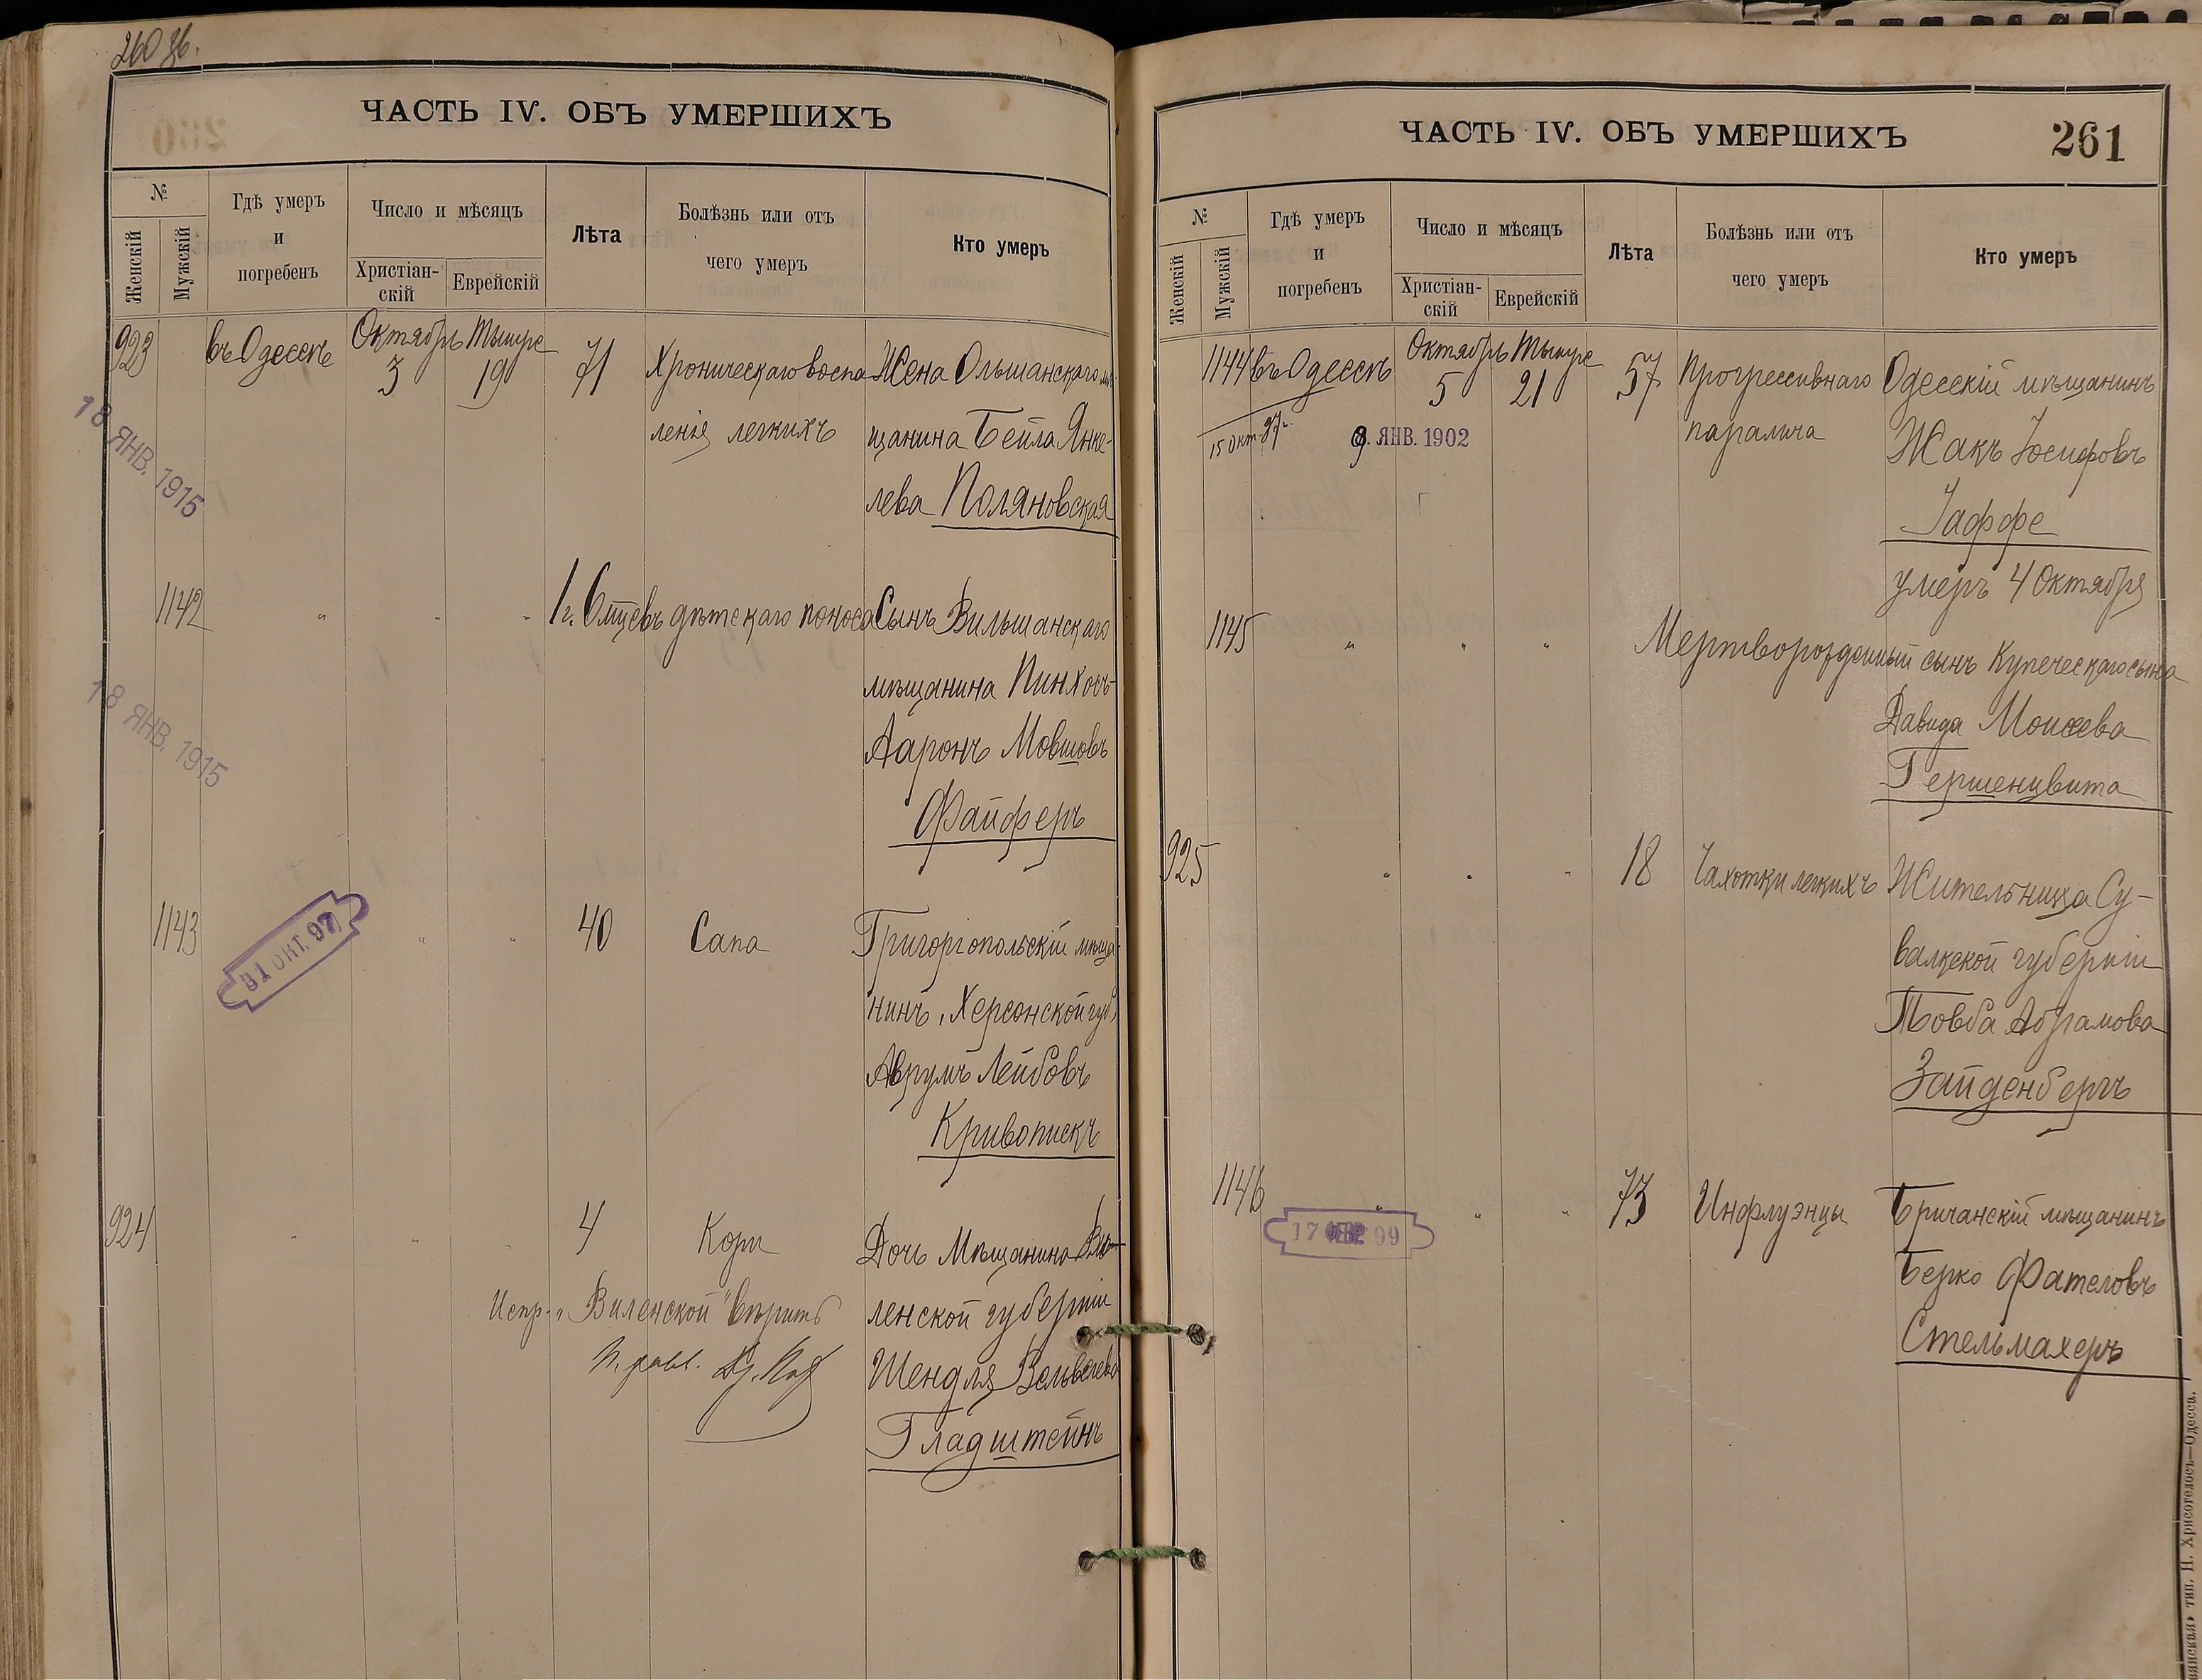 260 об.
ЧАСТЬ IV. ОБЪ УМЕРШИХЪ
№
Женскій
Мужскій
Гдѣ умеръ
и
погребенъ
Число и мѣсяцъ
Христіан-
скій
Еврейскій
Лѣта
Болѣзнь или отъ
чего умеръ
Кто умеръ
923 въ Одессѣ Октябрь 3 Тышре 19 71 Хроническаго воспа- Жена Ольшанскаго мѣ-
ленія легкихъ щанина Бейла Янке-
лева Поляновская
18 ЯНВ. 1915
1142 " " " 1 г. 6 мцевъ дѣтскаго поноса Сынъ Вильшанскаго
мѣщанина Пинхосъ-
Ааронъ Мовшовъ
Файферъ
18 ЯНВ. 1915
1143 " " 40 Сапа Григоріопольскій мѣща-
нинъ, Херсонской губ,
Аврумъ Лейбовъ
Кривопискъ
31 ОКТ. 97
924 " " " 4 Кори Дочь Мѣщанина Ви-
Испр. "Виленской" вѣрить ленской губерніи
Шендля Вольвелева
Гладштейнъ
ЧАСТЬ IV. ОБЪ УМЕРШИХЪ
261
№
Женскій
Мужскій
Гдѣ умеръ
и
погребенъ
Число и мѣсяцъ
Христіан-
скій
Еврейскій
Лѣта
Болѣзнь или отъ
чего умеръ
Кто умеръ
1144 въ Одессѣ Октябрь 5 Тышре 21 57 Прогрессивнаго Одесскій мѣщанинъ
15 Окт. 97 г. 9. ЯНВ. 1902 паралича Жакъ Іосифовъ
Іаффе
умеръ 4 Октября
1145 " " " Мертворожденный сынъ Купеческаго сына
Давида Моисеева
Гершенцвита
925 " " " 18 Чахотки легкихъ Жительница Су-
валкской губерніи
Товба Абрамова
Зайденбергъ
1146 " " " 73 Инфлуэнцы Бричанскій мѣщанинъ
17 99 Берко Фателовъ
Стельмахеръ
тип. Н. Хрисогелосъ—Одесса.